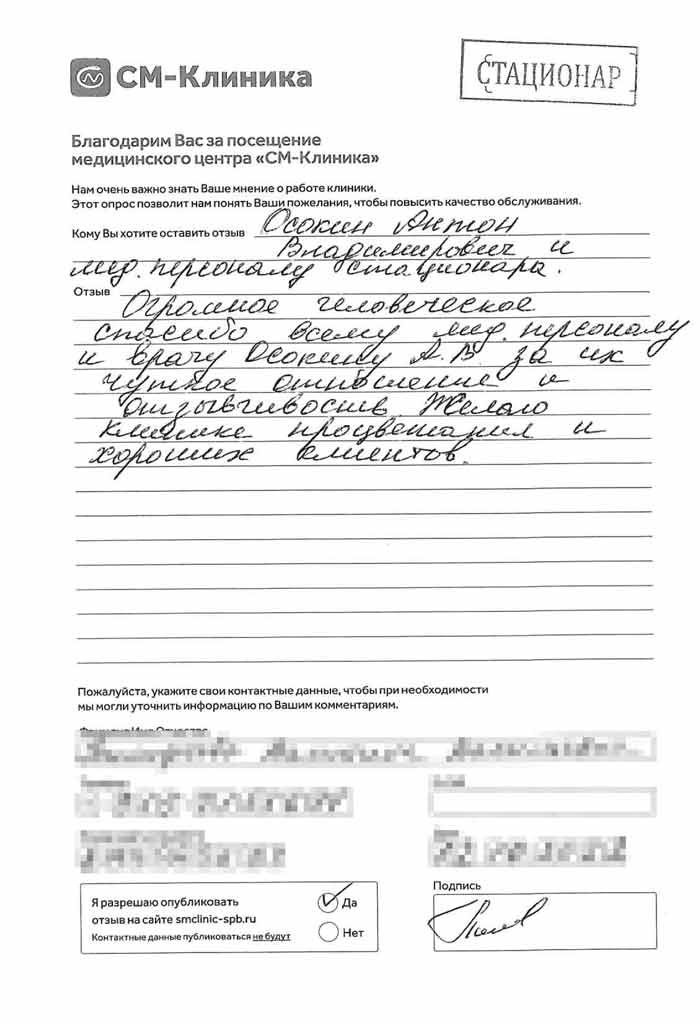 СМ-Клиника
СТАЦИОНАР
Благодарим Вас за посещение
медицинского центра «СМ-Клиника»
Нам очень важно знать Ваше мнение о работе клиники.
Этот опрос позволит нам понять Ваши пожелания, чтобы повысить качество обслуживания.
Кому Вы хотите оставить отзыв Осокин Антон
Владимирович и
мед. персоналу стационара.
Отзыв
Огромное человеческое
спасибо всему мед. персоналу
и врачу Осокину А. В. за их
чуткое отношение и
отзывчивость. Желаю
клинике процветания и
хороших клиентов.
Пожалуйста, укажите свои контактные данные, чтобы при необходимости
мы могли уточнить информацию по Вашим комментариям.
Я разрешаю опубликовать
отзыв на сайте smclinic-spb.ru
Контактные данные публиковаться не будут
Да
Нет
Подпись